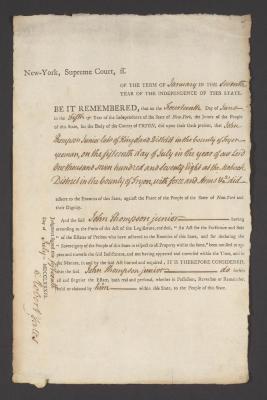 New-York, Supreme Court, ss.
OF THE TERM OF January IN THE Seventh
YEAR OF THE INDEPENDENCE OF THIS STATE.
BE IT REMEMBERED, that on the Fourteenth Day of June
in the fifth Year of the Independence of the State of New-York, the Jurors of the People
of this State, for the Body of the County of TRYON, did upon their Oath present, that John
Thompson Junior late of Kingsland District in the County of Tryon
yeoman, on the fifteenth day of July in the year of our Lord
One thousand seven hundred and seventy Eight at the
District in the County of Tryon, with force and Arms &c. did
adhere to the Enemies of this State, against the Peace of the People of the State of New-York and
their Dignity.
And the said John Thompson junior having
according to the Form of the Act of the Legislature, entitled, "An Act for the Forfeiture and Sale
" of the Estates of Persons who have adhered to the Enemies of this State, and for declaring the
" Sovereignty of the People of this State in respect to all Property within the same," been notified to appear
and traverse the said Indictment, and not having appeared and traversed within the Time, and in
the Manner, in and by the said Act limited and required; IT IS THEREFORE CONSIDERED,
that the said John Thompson junior do forfeit
all and singular the Estate, both real and personal, whether in Possession, Reversion or Remainder,
held or claimed by him within this State, to the People of this State.
Judgment signed this fifteenth
Day of July MDCCLXXXIII.
Robert Yates